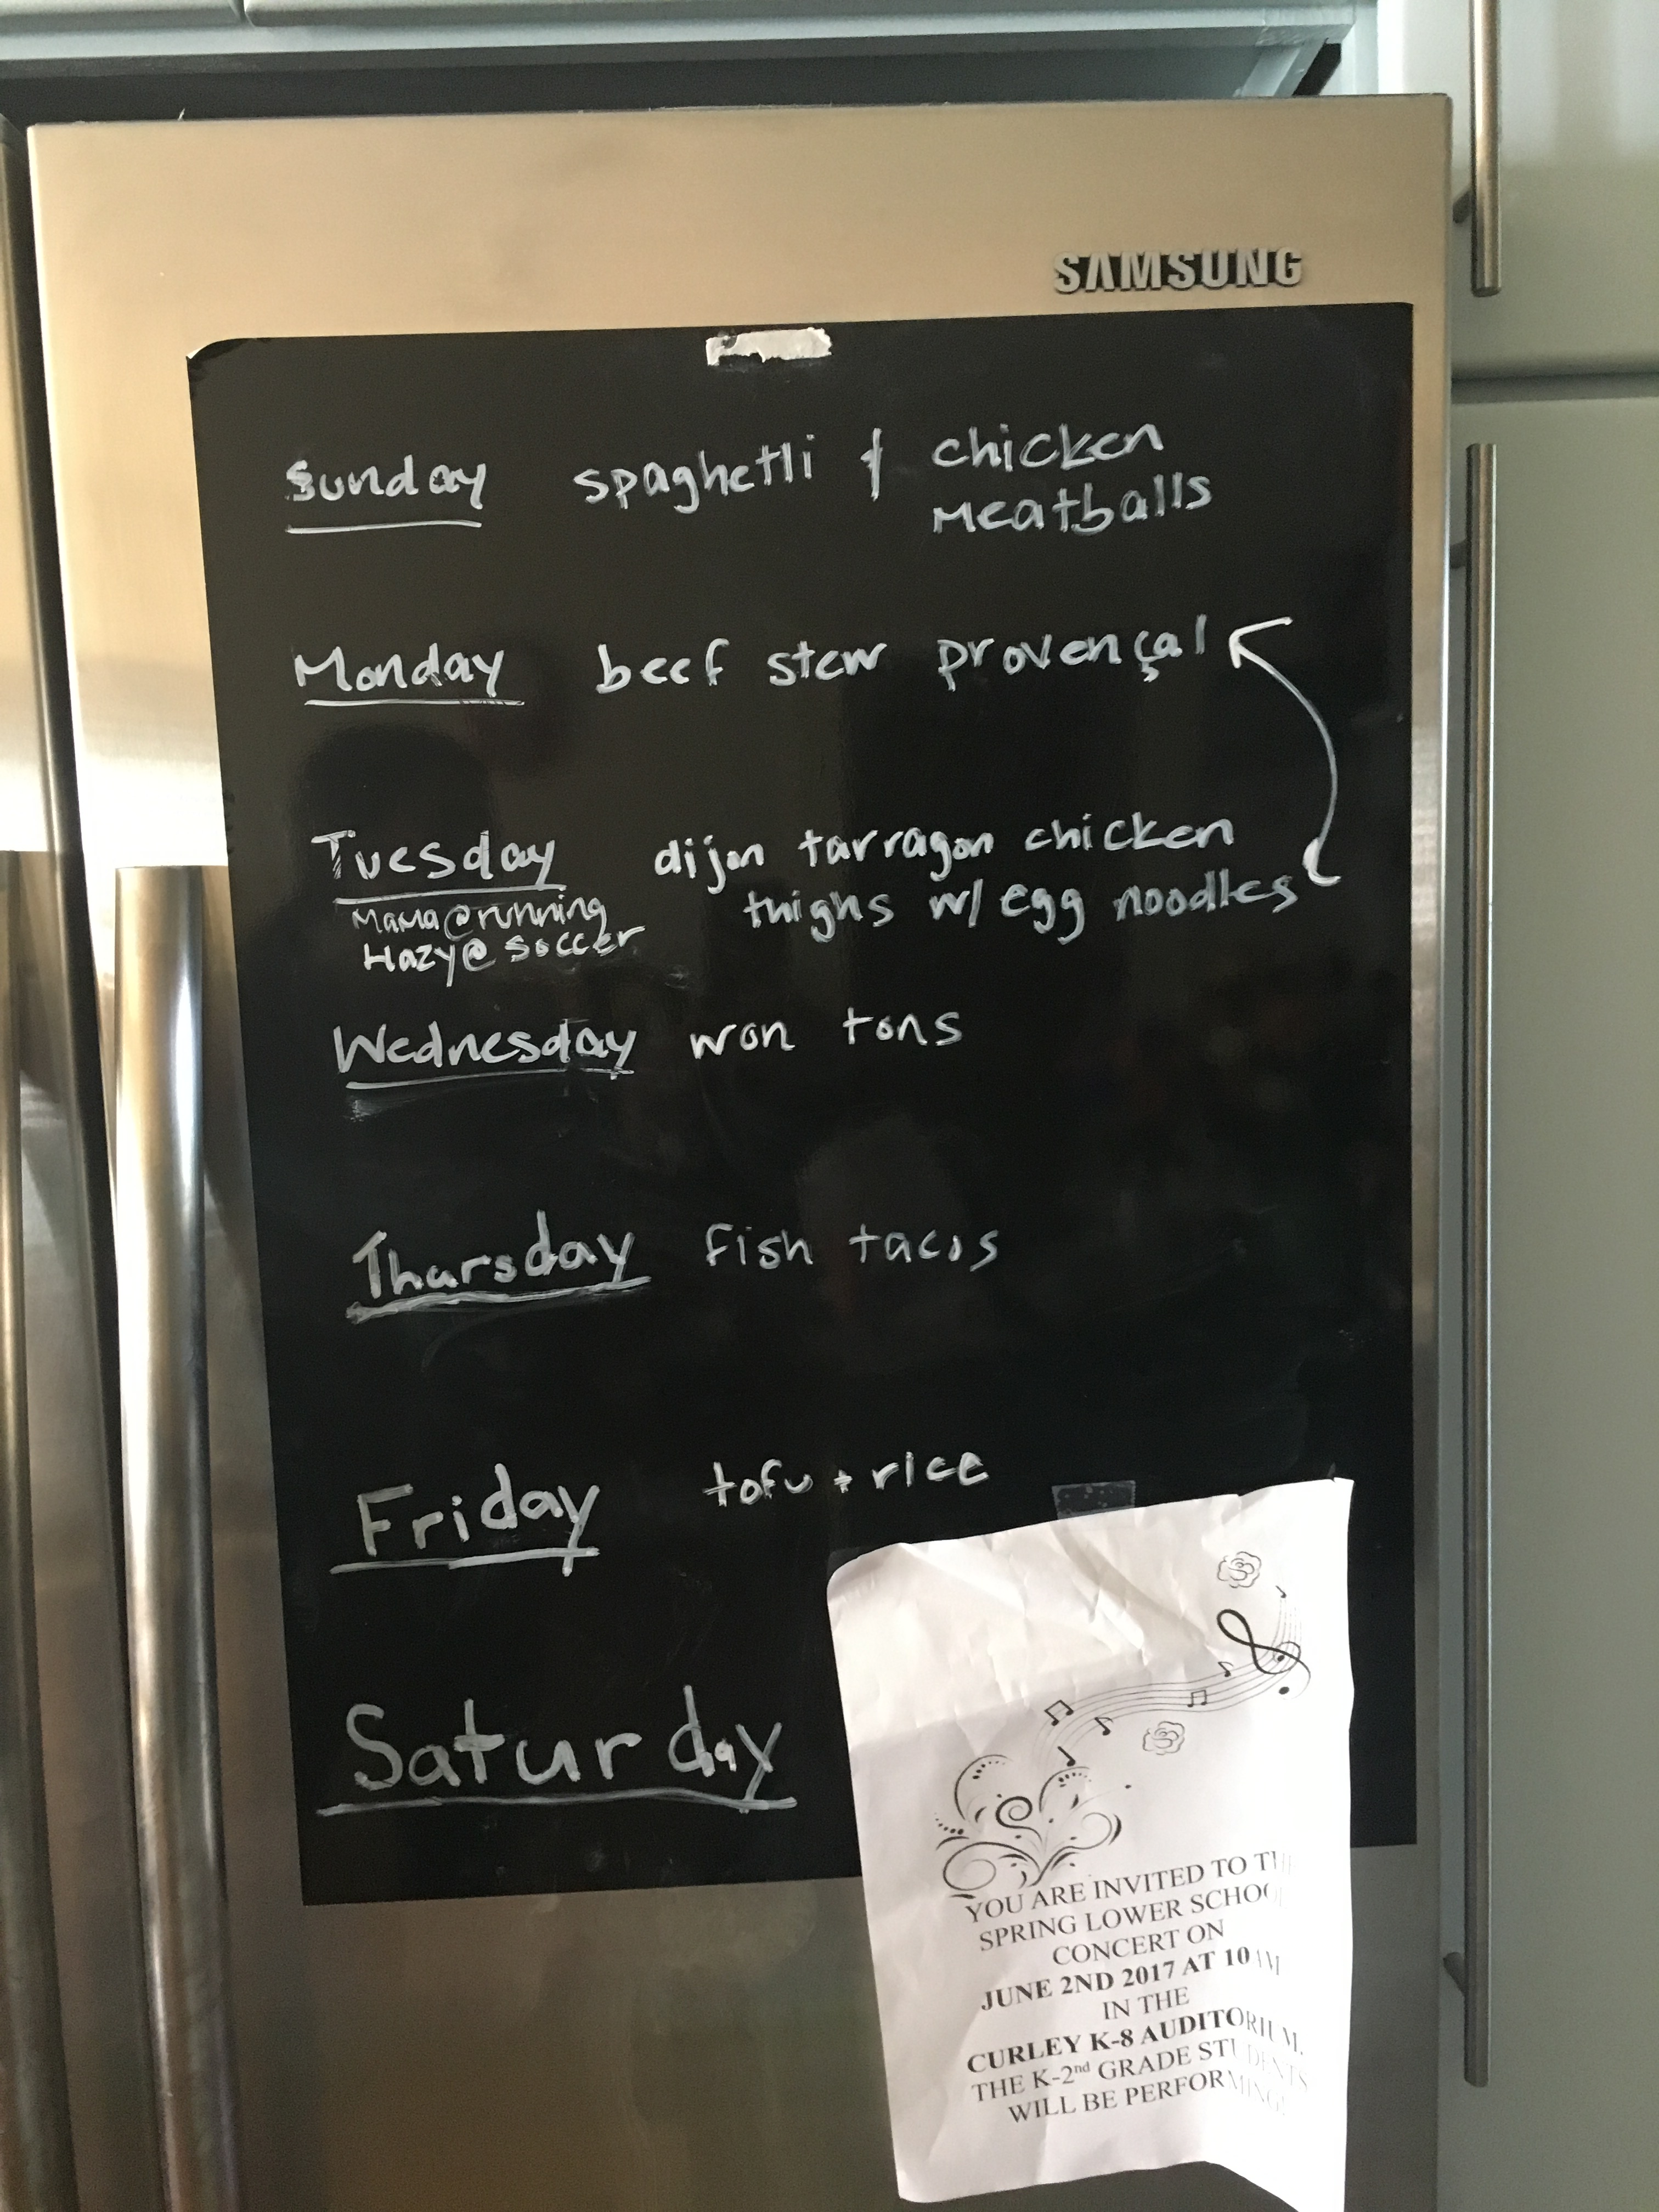 SAMSUNG
Sunday spaghetti & chicken
meatballs
Monday beef stew provençal
Tuesday dijon tarragon chicken
thighs w/ egg noodles
Mama@running
Hazy@soccer
Wednesday won tons
Thursday fish tacos
Friday tofu + rice
Saturday
YOU ARE INVITED TO THE
SPRING LOWER SCHOOL
CONCERT ON
JUNE 2ND 2017 AT 10AM
IN THE
CURLEY K-8 AUDITORIUM.
THE K-2nd GRADE STUDENTS
WILL BE PERFORMING!